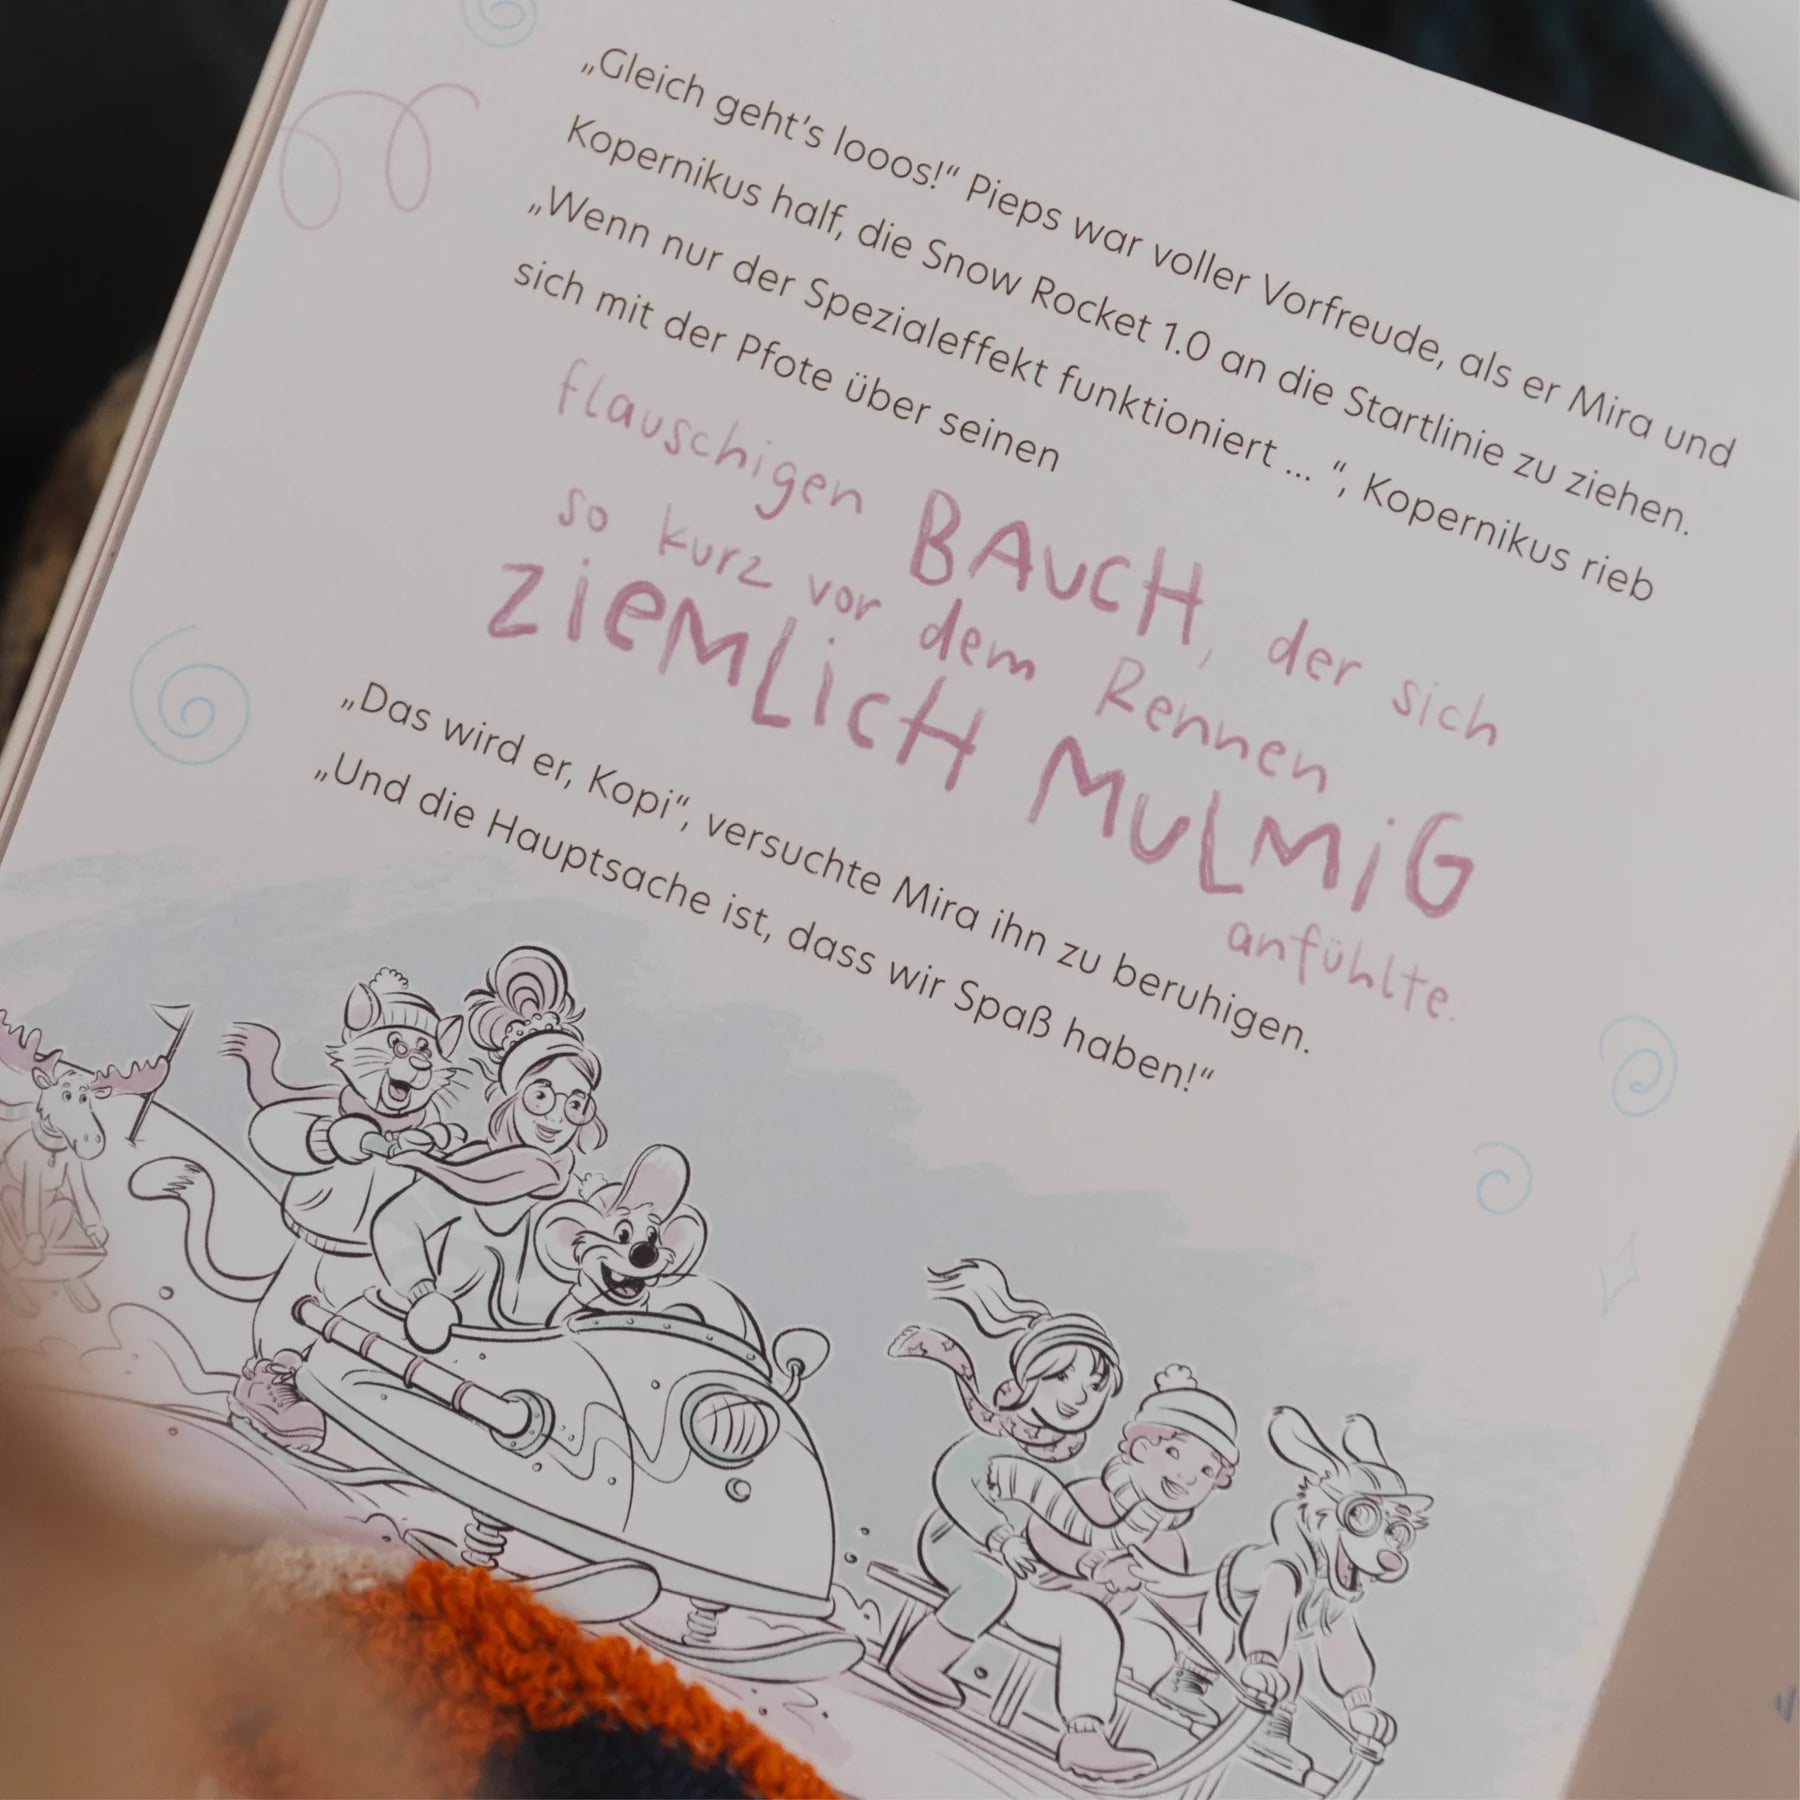 „Gleich geht's looos!“ Pieps war voller Vorfreude, als er Mira und
Kopernikus half, die Snow Rocket 1.0 an die Startlinie zu ziehen.
„Wenn nur der Spezialeffekt funktioniert ... “, Kopernikus rieb
sich mit der Pfote über seinen
flauschigen BAUCH, der sich
so kurz vor dem Rennen
ZiEMLiCH MULMiG
anfühlte.
„Das wird er, Kopi“, versuchte Mira ihn zu beruhigen.
„Und die Hauptsache ist, dass wir Spaß haben!“